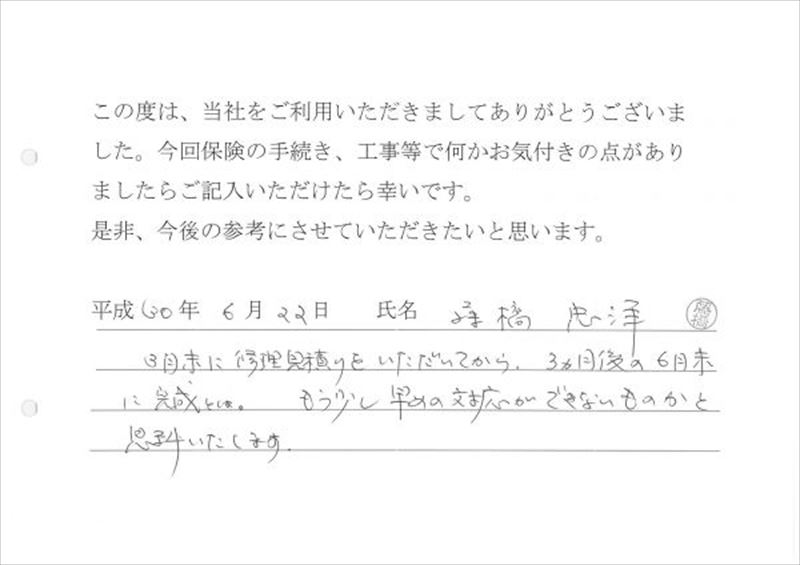 この度は、当社をご利用いただきましてありがとうございま
した。今回保険の手続き、工事等で何かお気付きの点があり
ましたらご記入いただけたら幸いです。
是非、今後の参考にさせていただきたいと思います。
平成 30年 6月 22日 氏名 橋
3月末に修理見積りをいただいてから、3ヵ月後の6月末
に完成とは。 もう少し早めの対応ができないものかと
思料いたします。